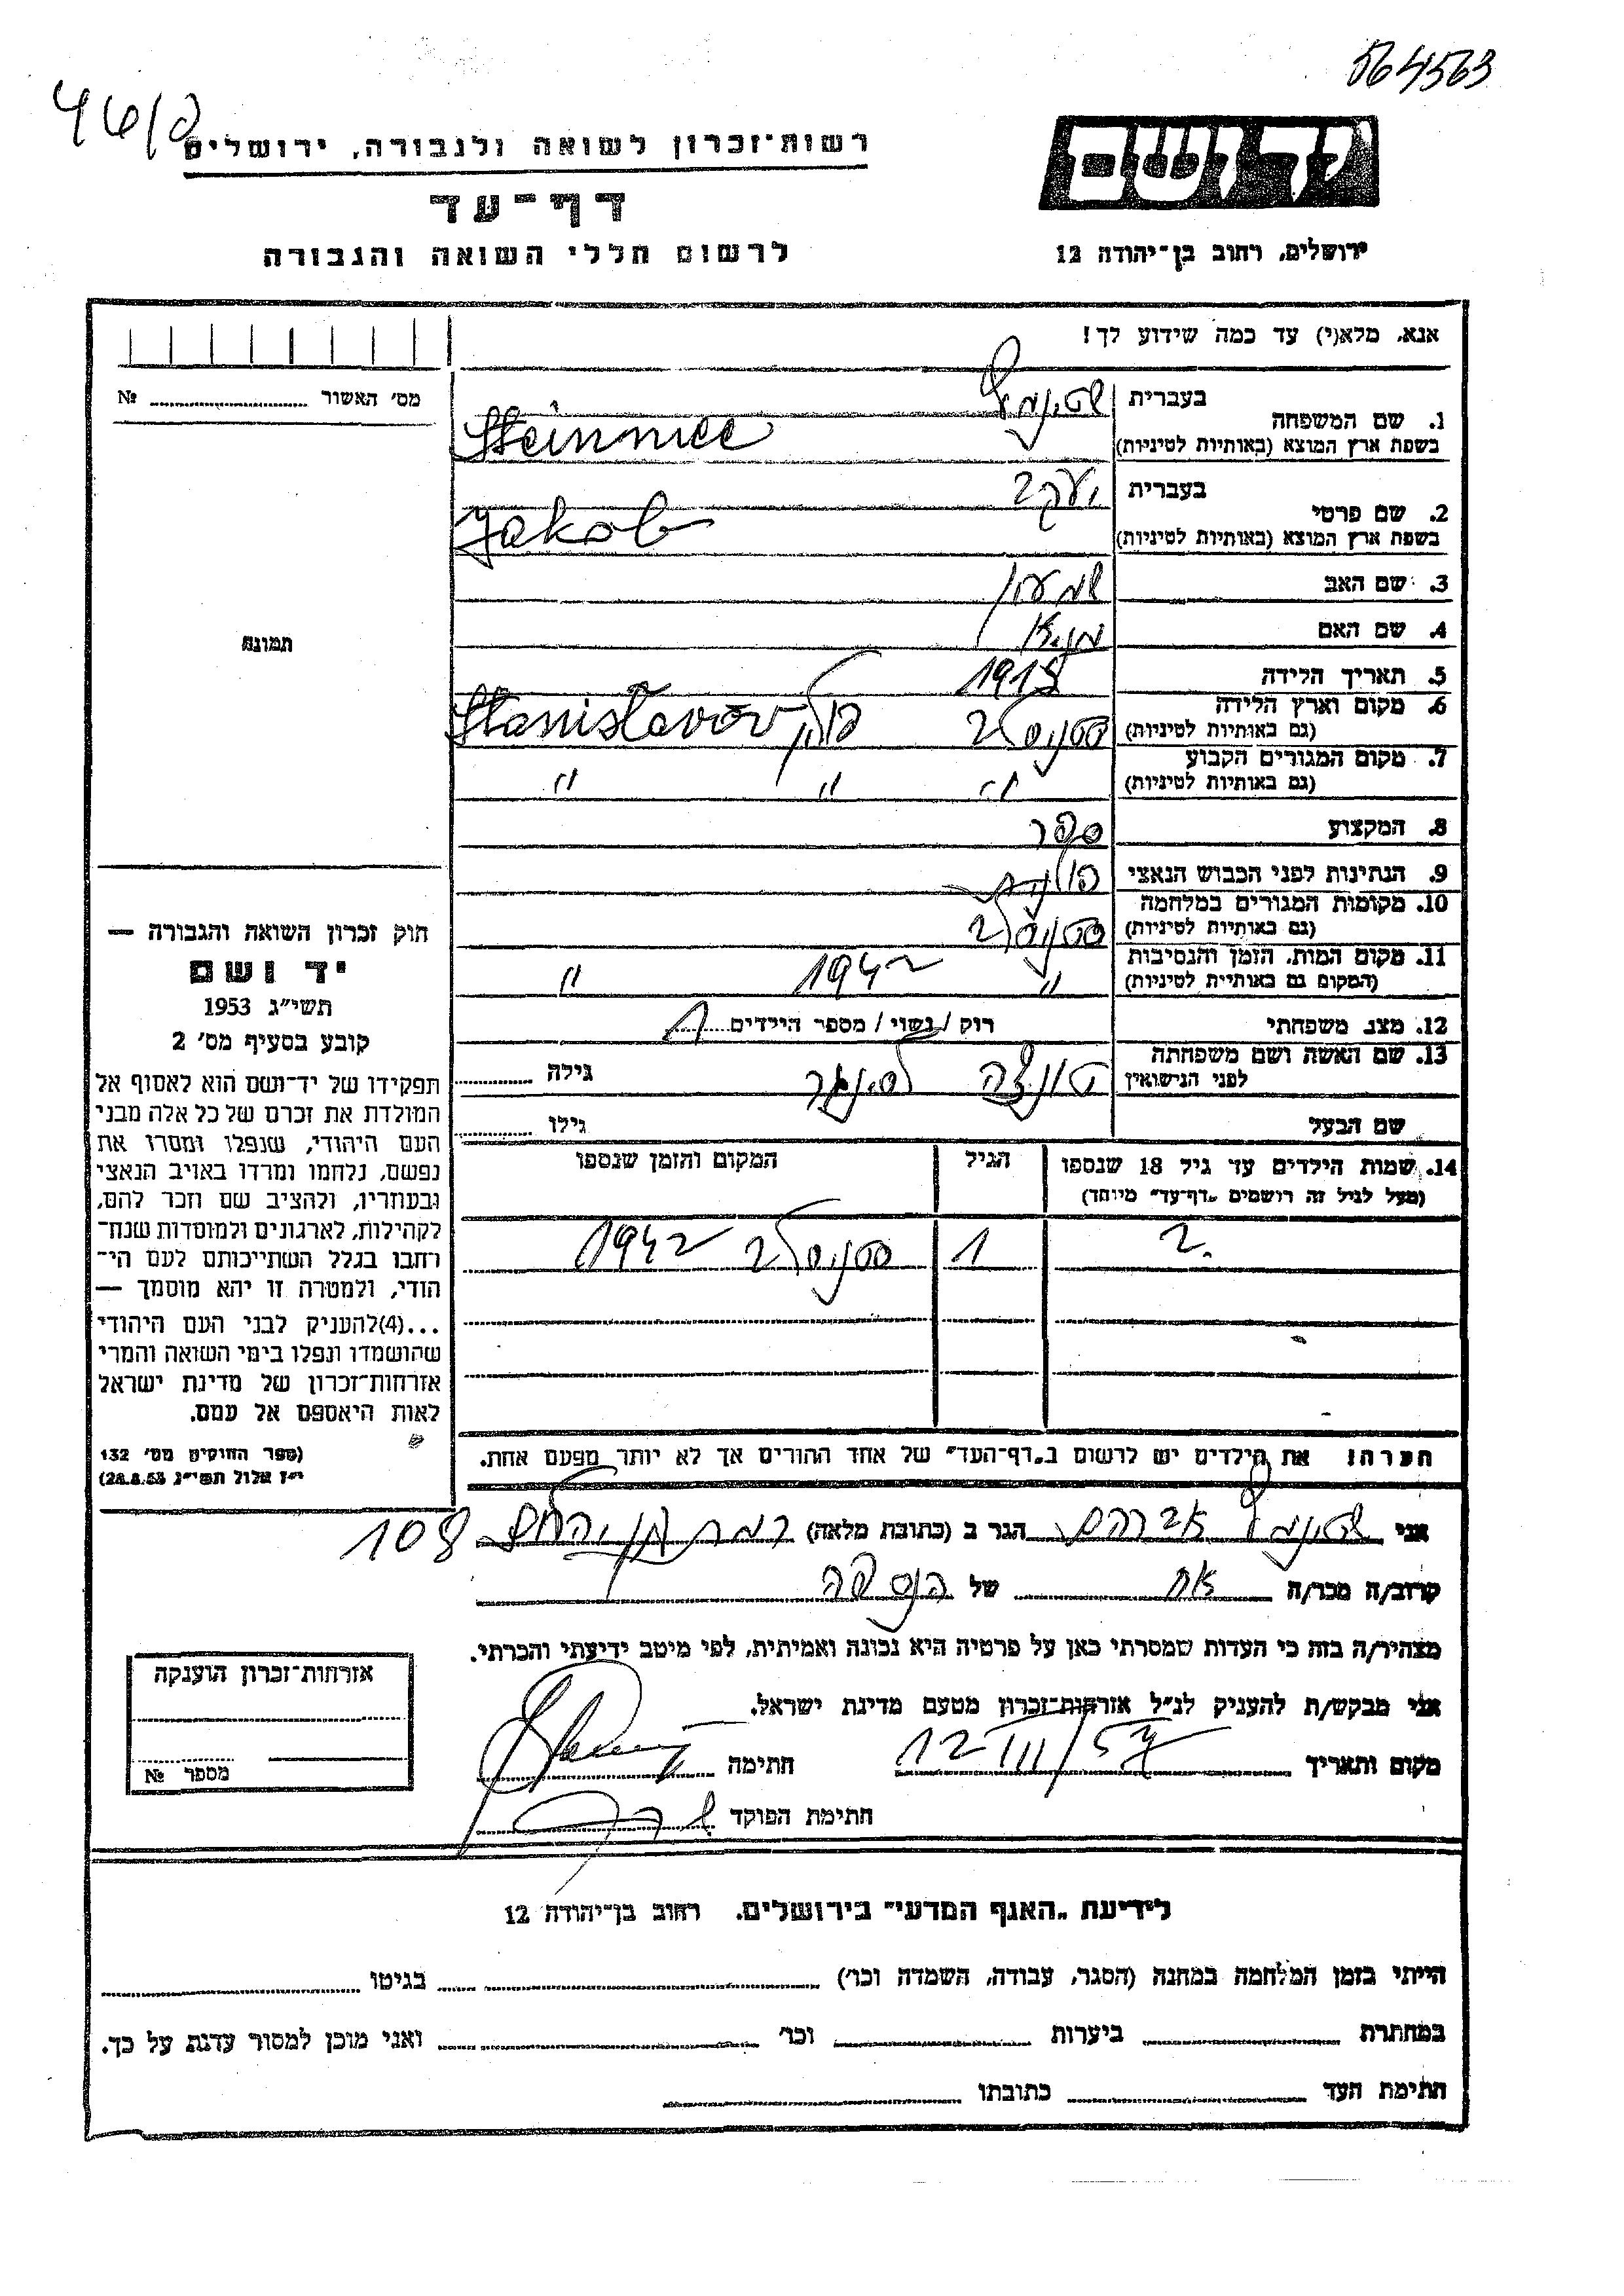 564563
רשות־זכרון לשואה ולגבורה, ירושלים
דף־עד
לרשום חללי השואה והגבורה
יד ושם
ירושלים, רחוב בן־יהודה 12
אנא, מלא(י) עד כמה שידוע לך!
מס׳ האשור № 
1. שם המשפחה
בעברית
בשפת ארץ המוצא (באותיות לטיניות)
Steinmec
2. שם פרטי
בעברית יעקב
בשפת ארץ המוצא (באותיות לטיניות) Jakob
3. שם האב שמעון
4. שם האם
5. תאריך הלידה 1918
6. מקום וארץ הלידה
(גם באותיות לטיניות) סטניסלב פולין Stanisławów
7. מקום המגורים הקבוע
(גם באותיות לטיניות) " " "
8. המקצוע ספר
9. הנתינות לפני הכבוש הנאצי פולנית
10. מקומות המגורים במלחמה
(גם באותיות לטיניות) סטניסלב
11. מקום המות, הזמן והנסיבות
(המקום גם באותיית לטיניות) " 1942 "
12. מצב משפחתי רוק / נשוי / מספר הילדים 1
13. שם האשה ושם משפחתה
לפני הנישואין גילה
שם הבעל גילו
14. שמות הילדים עד גיל 18 שנספו הגיל המקום והזמן שנספו
(מעל לגיל זה רושמים „דף־עד" מיוחד)
1 סטניסלב 1942
תמונה
חוק זכרון השואה והגבורה —
יד ושם
תשי״ג 1953
קובע בסעיף מס׳ 2
תפקידו של יד־ושם הוא לאסוף אל
המולדת את זכרם של כל אלה מבני
העם היהודי, שנפלו ומסרו את
נפשם, נלחמו ומרדו באויב הנאצי
ובעוזריו, ולהציב שם וזכר להם,
לקהילות, לארגונים ולמוסדות שנח־
רבו בגלל השתייכותם לעם הי־
הודי, ולמטרה זו יהא מוסמך —
...(4)להעניק לבני העם היהודי
שהושמדו ונפלו בימי השואה והמרי
אזרחות־זכרון של מדינת ישראל
לאות היאספם אל עמם.
(ספר החוקים מס׳ 132
י״ז אלול תשי״ג 28.8.53)
הערה! את הילדים יש לרשום ב„דף־העד" של אחד ההורים אך לא יותר מפעם אחת.
אני אברהם הגר ב (כתובת מלאה) 108
קרוב/ה מכר/ה אח של הנספה
מצהיר/ה בזה כי העדות שמסרתי כאן על פרטיה היא נכונה ואמיתית, לפי מיטב ידיעתי והכרתי.
אני מבקש/ת להעניק לנ״ל אזרחות־זכרון מטעם מדינת ישראל.
מקום ותאריך 12 III/57 חתימה
חתימת הפוקד
אזרחות־זכרון הוענקה
מספר №
לידיעת „האגף המדעי" בירושלים, רחוב בן־יהודה 12
הייתי בזמן המלחמה במחנה (הסגר, עבודה, השמדה וכו׳) בגיטו
במחתרת ביערות וכו׳ ואני מוכן למסור עדות על כך.
חתימת העד כתובתו